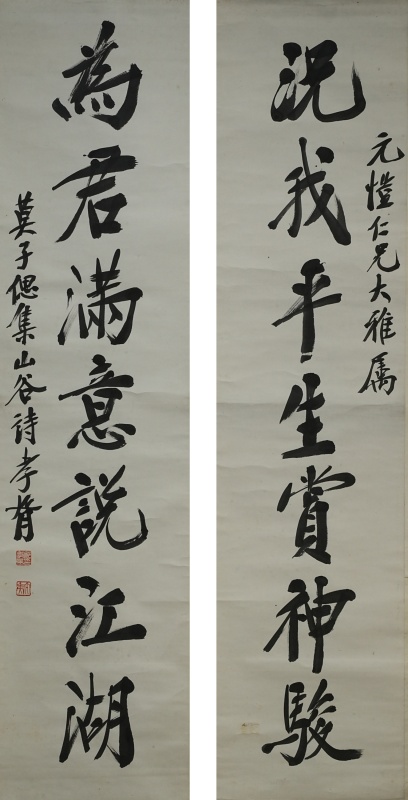 元愷仁兄大雅属
況我平生賞神駿
為君滿意說江湖
莫子偲集山谷詩孝胥